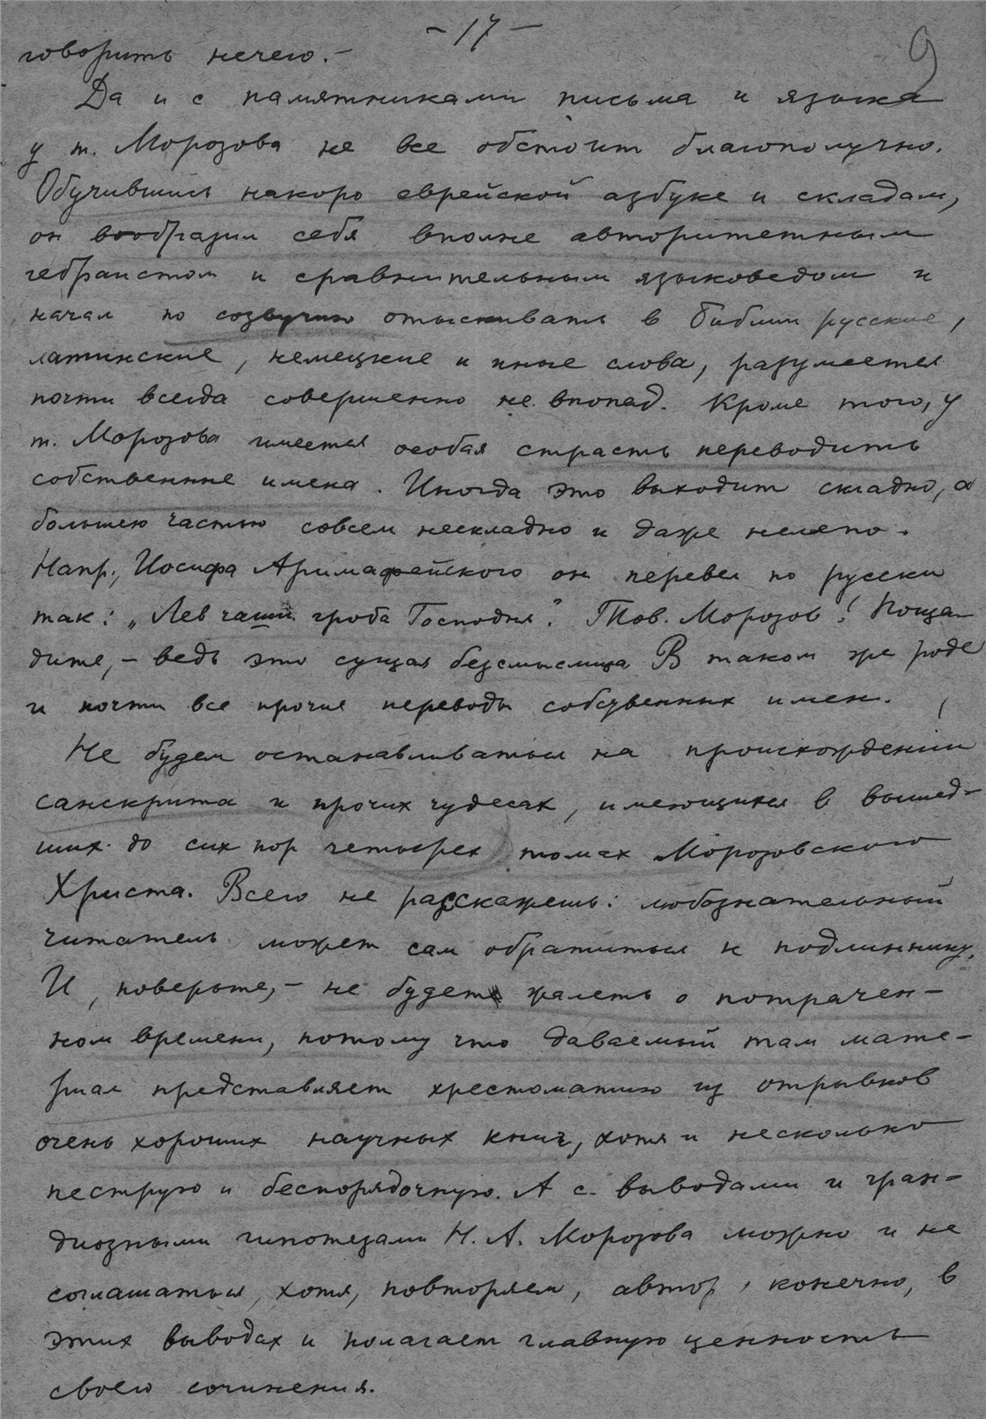 -17-
9
говорить нечего. -
Да и с памятниками письма и языка
у т. Морозова не все обстоит благополучно.
Обучившись наскоро еврейской азбуке и складам,
он вообразил себя вполне авторитетным
гебраистом и сравнительным языковедом и
начал по созвучию отыскивать в библии русские,
латинские, немецкие и иные слова, разумеется
почти всегда совершенно не впопад. Кроме того, у
т. Морозова имеется особая страсть переводить
собственные имена. Иногда это выходит складно, а
большею частью совсем нескладно и даже нелепо.
Напр., Иосифа Аримафейского он перевел по русски
так: „Лев чаши гроба Господня". Тов. Морозов! Поща-
дите, - ведь это сущая безсмыслица В таком же роде
и почти все прочие переводы собственных имен.
Не будем останавливаться на происхождении
санскрита и прочих чудесах, имеющихся в вышед-
ших до сих пор четырех томах Морозовского
Христа. Всего не расскажешь: любознательный
читатель может сам обратиться к подлиннику.
И, поверьте, - не будет жалеть о потрачен-
ном времени, потому что даваемый там мате-
риал представляет хрестоматию из отрывков
очень хороших научных книг, хотя и несколько
пеструю и беспорядочную. А с выводами и гран-
диозными гипотезами Н. А. Морозова можно и не
соглашаться, хотя, повторяем, автор, конечно, в
этих выводах и полагает главную ценность
своего сочинения.